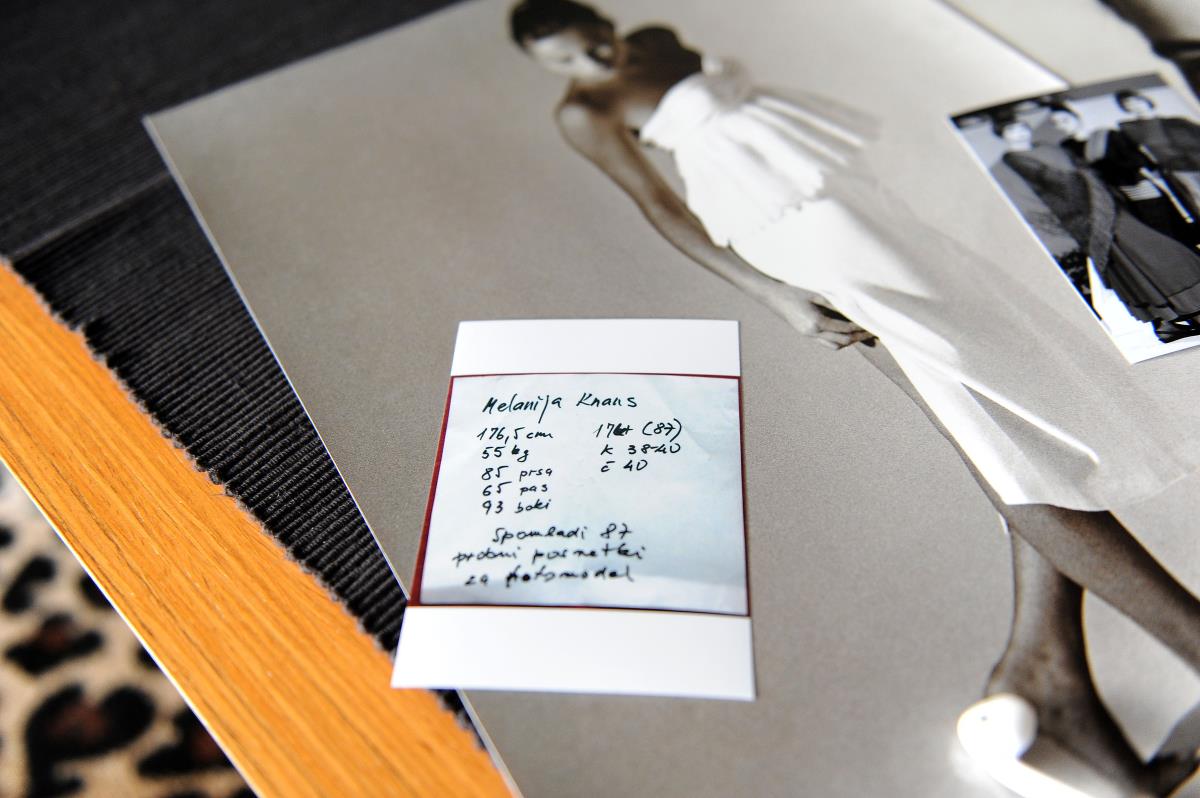 Melanija Knaus
176,5 cm 17 let (87)
55 kg k 38-40
85 prsa č 40
65 pas
93 boki
Spomladi 87
probni posnetki
za fotomodel